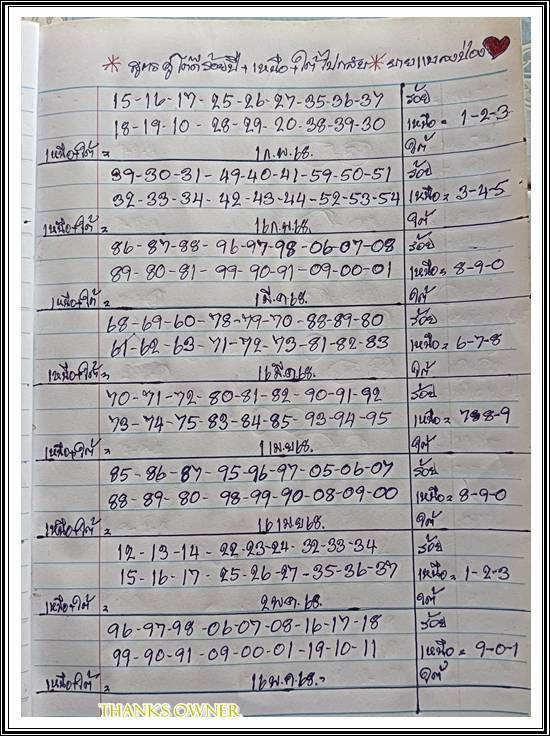 15-16-17- 25-26-27-35-36-37 ร้อย
18-19-10 - 28-29-20-38-39-30 เหนือ = 1-2-3
เหนือ+ใต้ = 1 ก.พ.68. ใต้
39-30-31-49-40-41-59-50-51 ร้อย
32-33-34- 42-43-44-52-53-54 เหนือ = 3-4-5
เหนือ+ใต้ = 16 ก.พ.68. ใต้
86-87-88- 96-97-98-06-07-08 ร้อย
89-80-81- 99-90-91-09-00-01 เหนือ = 8-9-0
เหนือ+ใต้ = 1 มี.ค 68. ใต้
68-69-60-78-79-70-88-89-80 ร้อย
61-62-63-71-72-73-81-82-83 เหนือ = 6-7-8
เหนือ+ใต้ = 16 มี.ค 68. ใต้
70-71-72-80-81-82-90-91-92 ร้อย
73-74-75-83-84-85-93-94-95 เหนือ = 7-8-9
เหนือ+ใต้ = 1 เมย 68. ใต้
85-86-87-95-96-97-05-06-07 ร้อย
88-89-80- 98-99-90-08-09-00 เหนือ = 8-9-0
เหนือ+ใต้ = 16 เมย 68. ใต้
12-13-14-22-23-24-32-33-34 ร้อย
15-16-17-25-26-27-35-36-37 เหนือ = 1-2-3
เหนือ+ใต้ = 2 พ.ค.68. ใต้
96-97-98-06-07-08-16-17-18 ร้อย
99-90-91-09-00-01-19-10-11 เหนือ = 9-0-1
เหนือ+ใต้ = 16 พ.ค 68. ใต้
THANKS OWNER